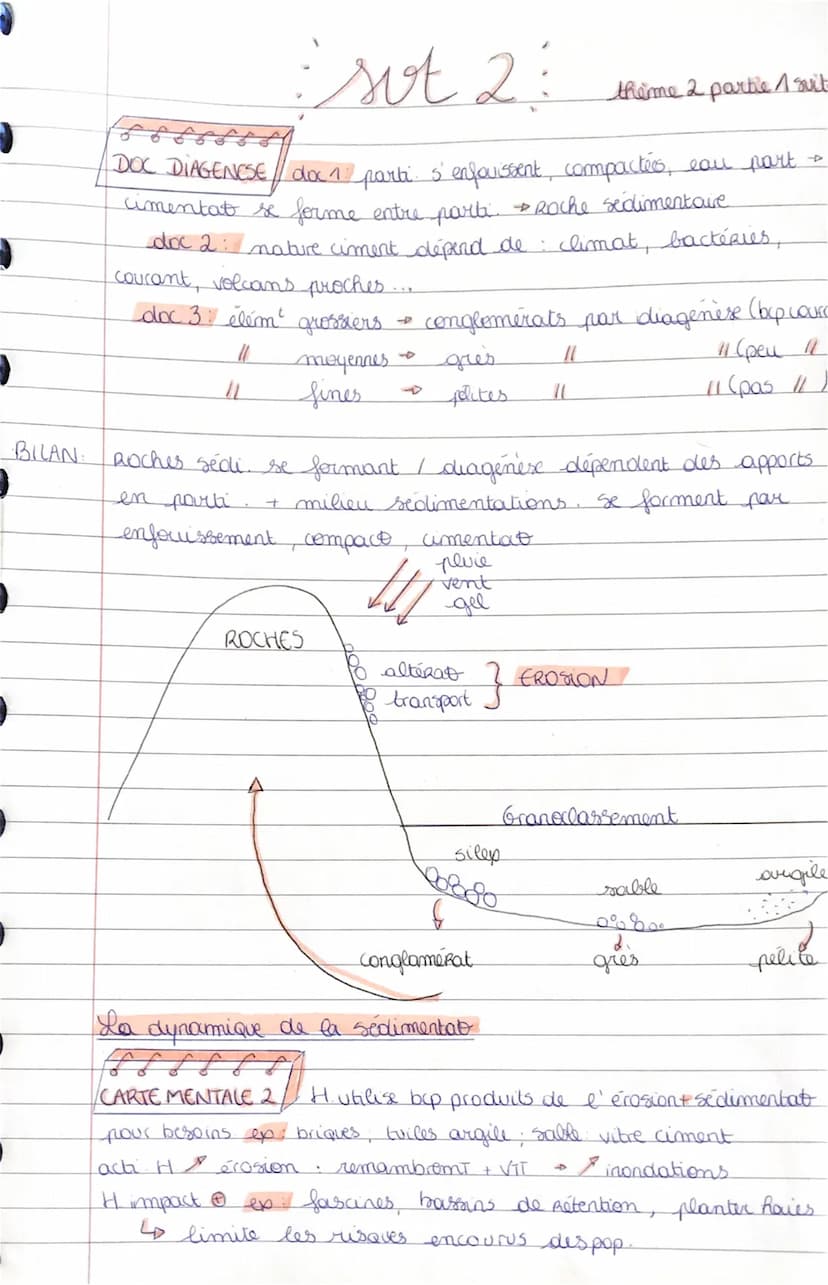 svt 2
thème 2 partie 1 suit
DOC DIAGENESE doc 1: parti. s'enfouissent, compactées, eau part →
cimentat° se forme entre parti. → Roche sédimentaire
doc 2: nature ciment dépend de : climat, bactéries,
courant, volcans proches...
doc 3: élém^t grossiers → conglomérats par diagénèse (bcp
" moyennes → grès " " (peu "
" fines → pélites " " (pas " )
BILAN: Roches sédi. se formant / diagénèse dépendent des apports
en parti. + milieu sédimentations. Se forment par
enfouissement, compact°, cimentat°
pluie
vent
gel
ROCHES
altérat°
transport } EROSION
Granoclassement
silex
sable
argile
conglomérat
grès
pélite
La dynamique de la sédimentat°
CARTE MENTALE 2 H utilise bcp produits de l'érosion + sédimentat°
pour besoins ex: briques, tuiles argile; sable vitre ciment
acti H ↗ érosion : remembremT + VTT → ↗ inondations
H impact ⊕ ex: fascines, bassins de rétention, planter haies
↳ limite les risques encourus des pop.